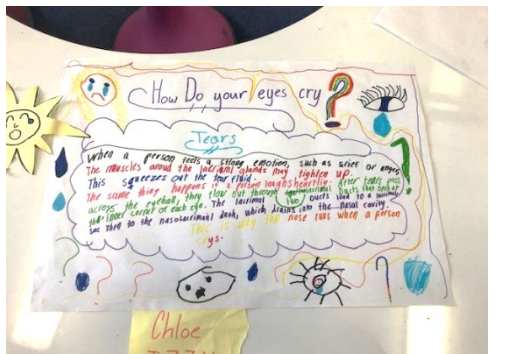 How Do your eyes cry ?
Tears
When a person feels a strong emotion, such as grief or anger,
The muscles around the lacrimal glands may tighten up.
This squeezes out the tear fluid.
The same thing happens if a person laughs heartily. After tears pass
across the eyeball, they flow out through lacrimal ducts that open at
the inner corner of each eye. The lacrimal ducts lead to a lacrimal
sac then to the nasolacrimal, which drains into the nasal cavity.
This is why the nose runs when a person
crys.
Chloe